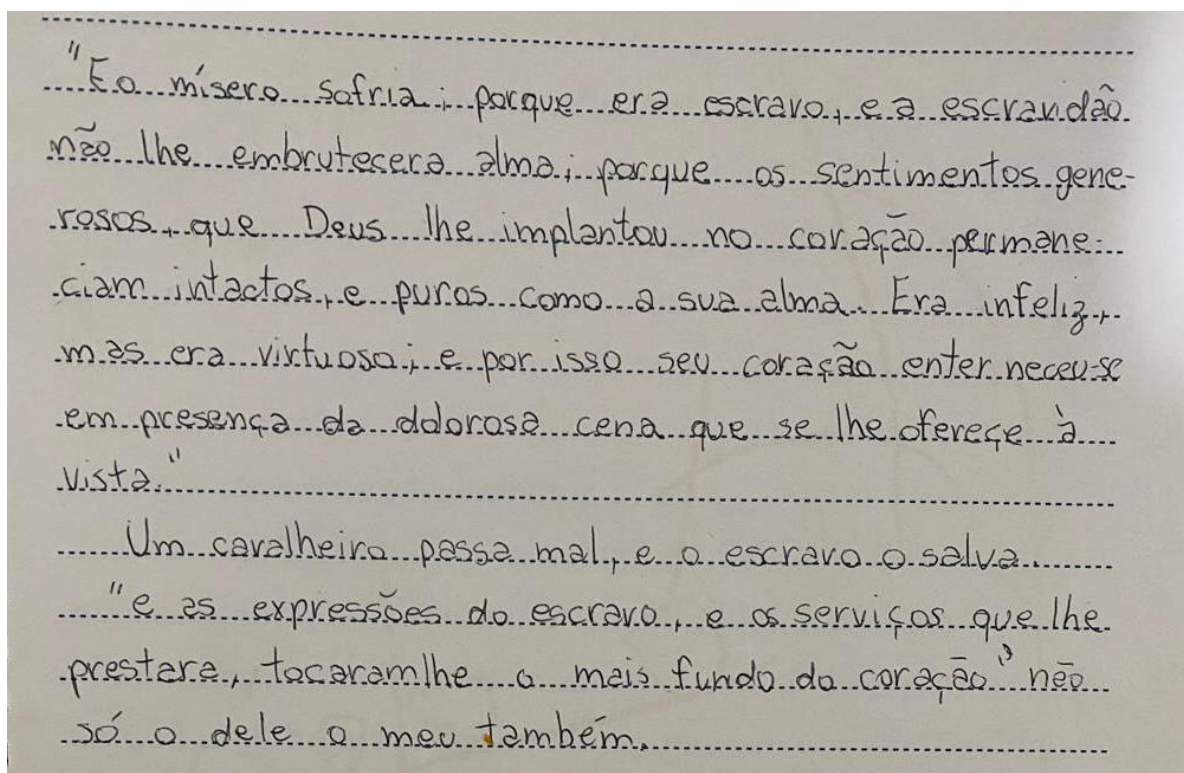 "E o mísero sofria; porque era escravo, e a escravidão
não lhe embrutecera alma; porque os sentimentos gene-
rosos, que Deus lhe implantou no coração permane-
ciam intactos, e puros como a sua alma. Era infeliz,
mas era virtuoso; e por isso seu coração enterneceu-se
em presença da dolorosa cena que se lhe ofereçe à
vista."
Um cavalheiro passa mal, e o escravo o salva.
"e as expressões do escravo, e os serviços que lhe
prestara, tocaramlhe o mais fundo do coração" não
só o dele o meu também.